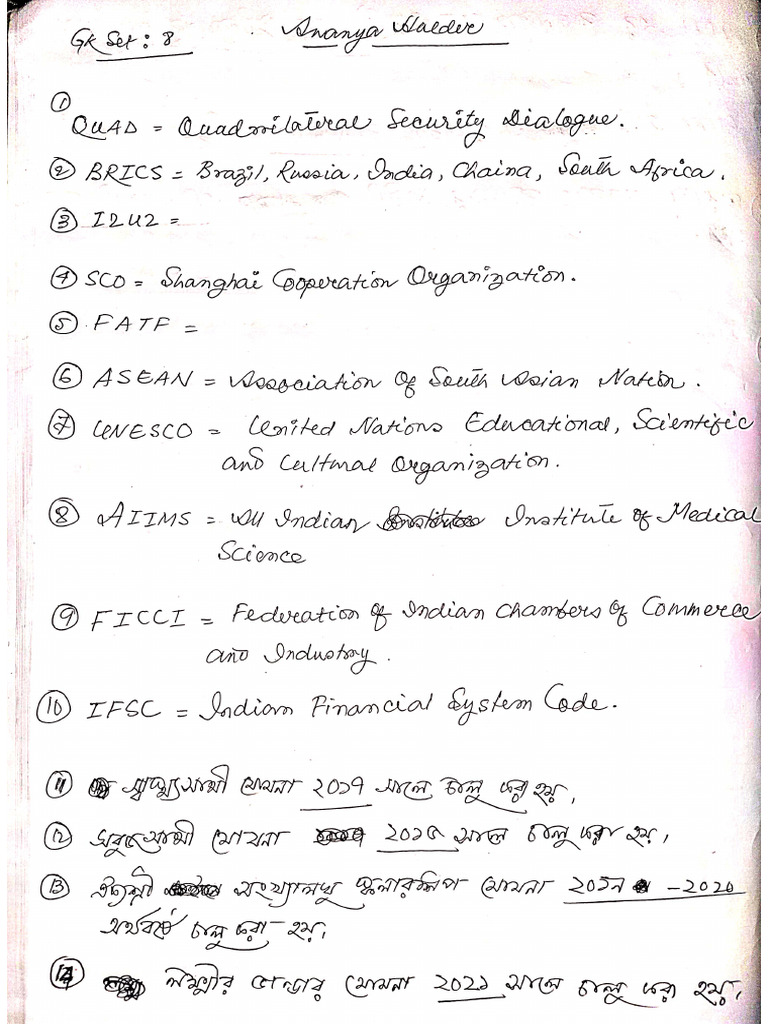 GK Set : 8
Ananya Halder
① QUAD = Quadrilateral Security Dialogue.
② BRICS = Brazil, Russia, India, Chaina, South Africa.
③ I2U2 =
④ SCO = Shanghai Cooperation Organization.
⑤ FATF =
⑥ ASEAN = Association Of South Asian Nation.
⑦ UNESCO = United Nations Educational, Scientific
and Cultural Organization.
⑧ AIIMS = All Indian Institute of Medical
Science
⑨ FICCI = Federation of Indian Chambers Of Commerce
and Industry.
⑩ IFSC = Indian Financial System Code.
⑪ স্বাস্থ্যসাথী যোজনা ২০১৭ সালে চালু করা হয়।
⑫ সবুজসাথী যোজনা ২০১৫ সালে চালু করা হয়।
⑬ ঐক্যশ্রী সংখ্যালঘু স্কলারশিপ যোজনা ২০১৯ - ২০২০
অর্থবর্ষে চালু করা হয়।
⑭ লক্ষ্মীর ভান্ডার যোজনা ২০২১ সালে চালু করা হয়।